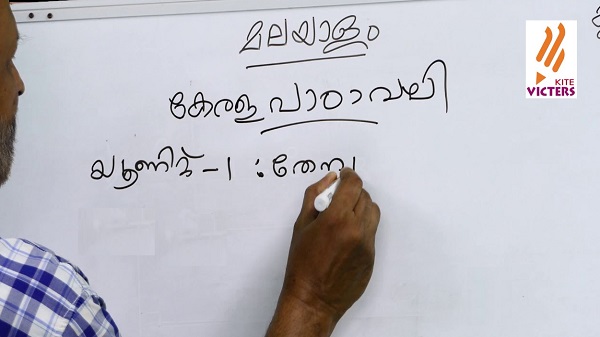 മലയാളം
കേരള പാഠാവലി
യൂണിറ്റ് - 1 :
KITE
VICTERS